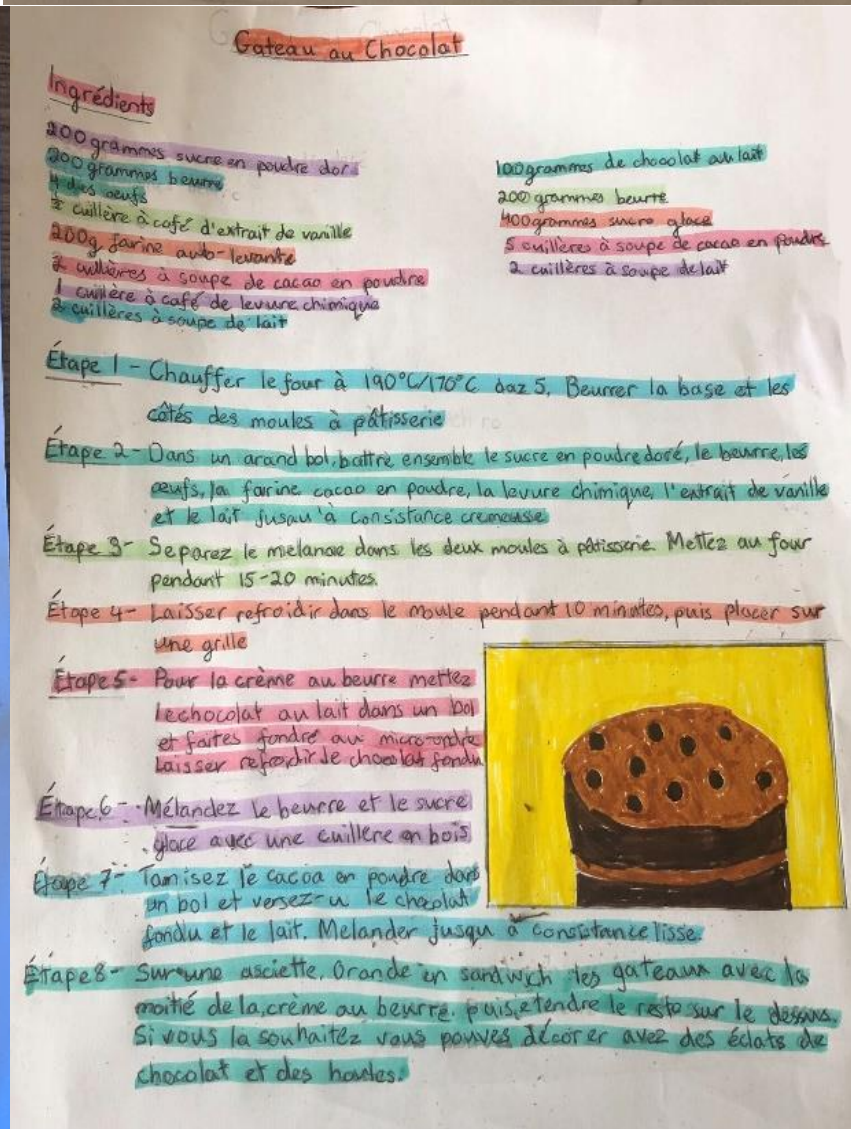 Gateau au Chocolat
Ingrédients
200 grammes sucre en poudre doré
200 grammes beurre
4 dies oeufs
cuillère à café d'extrait de vanille
200g farine auto-levante
2 cuillères à soupe de cacao en poudre
1 cuillère à café de levure chimique
2 cuillères à soupe de lait
100 grammes de chocolat au lait
200 grammes beurre
400 grammes sucre glace
5 cuillères à soupe de cacao en poudre
2 cuillères à soupe de lait
Étape 1 - Chauffer le four à 190°C/170°C Gaz 5, Beurrer la base et les
côtés des moules à pâtisserie
Étape 2 - Dans un arand bol, battre ensemble le sucre en poudre doré, le beurre, les
œufs, la farine cacao en poudre, la levure chimique, l'extrait de vanille
et le lait jusau'à consistance cremeuse
Étape 3 - Separez le melanae dans les deux moules à pâtisserie. Mettez au four
pendant 15-20 minutes.
Étape 4 - Laisser refroidir dans le moule pendant 10 minutes, puis placer sur
une grille
Étape 5 - Pour la crème au beurre mettez
le chocolat au lait dans un bol
et faites fondre au micro-ondre
Laisser refroidir le chocolat fondu
Étape 6 - Mélandez le beurre et le sucre
glace avec une cuillère en bois
Étape 7 - Tamisez le cacoa en poudre dans
un bol et versez-u le chocolat
fondu et le lait. Melander jusqu'à consistance lisse.
Étape 8 - Sur une asciette, Orande en sandwich les gateaux avec la
moitié de la crème au beurre, puis etendre le reste sur le dessus.
Si vous la souhaitez vous pouves décorer avez des éclats de
chocolat et des houles.